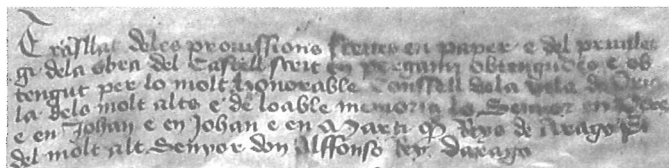 Trasllat deles prouissions scrites en paper e del priuilet
gi dela obra del Castell scrit en pergami obtengudes e ob
tengut per lo molt honorable Consell dela vila de Orio
la dels molt alts e de loable memoria lo Senyor en Pere
e en Johan e en Johan e en Marti Reys de Arago
del molt alt Senyor don Alffonso Rey Darago